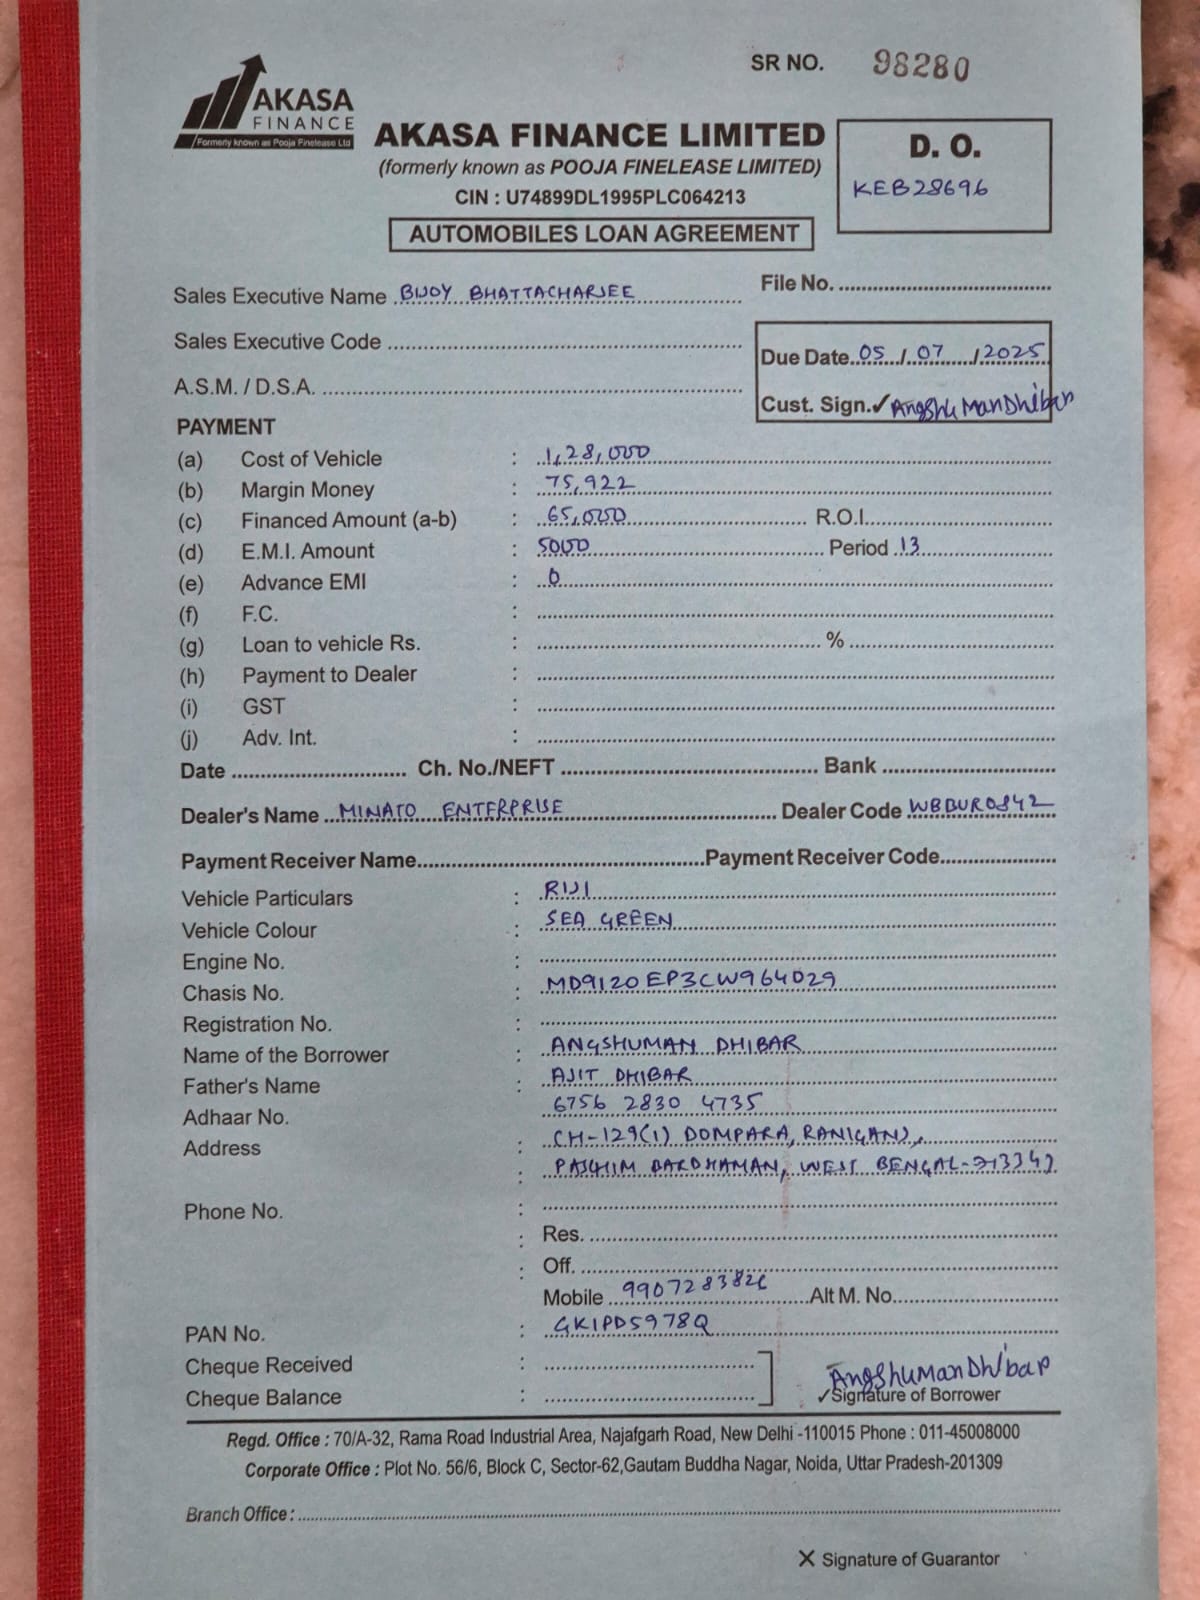 SR NO. 98280
AKASA
FINANCE
Formerly known as Pooja Finelease Ltd
AKASA FINANCE LIMITED
(formerly known as POOJA FINELEASE LIMITED)
CIN : U74899DL1995PLC064213
D. O.
KEB28696
AUTOMOBILES LOAN AGREEMENT
Sales Executive Name BIJOY BHATTACHARJEE
File No.
Sales Executive Code
Due Date 05/07/2025
A.S.M. / D.S.A.
Cust. Sign.✓ Angshuman Dhibar
PAYMENT
(a) Cost of Vehicle : 1,28,000
(b) Margin Money : 75,922
(c) Financed Amount (a-b) : 65,000 R.O.I.
(d) E.M.I. Amount : 5000 Period 13
(e) Advance EMI : 0
(f) F.C. :
(g) Loan to vehicle Rs. : %
(h) Payment to Dealer :
(i) GST :
(j) Adv. Int. :
Date Ch. No./NEFT Bank
Dealer's Name MINATO ENTERPRISE Dealer Code WBBUR0842
Payment Receiver Name Payment Receiver Code
Vehicle Particulars : RIJI
Vehicle Colour : SEA GREEN
Engine No. :
Chasis No. : MD9120EP3CW964029
Registration No. :
Name of the Borrower : ANGSHUMAN DHIBAR
Father's Name : AJIT DHIBAR
Adhaar No. 6756 2830 4735
Address : CH-129(1) DOMPARA, RANIGANJ,
: PASCHIM BARDHAMAN, WEST BENGAL-713347
Phone No. :
: Res.
: Off.
Mobile 9907283826 Alt M. No.
PAN No. : GKIPD5978Q
Cheque Received :
Cheque Balance :
Angshuman Dhibar
✓Signature of Borrower
Regd. Office : 70/A-32, Rama Road Industrial Area, Najafgarh Road, New Delhi -110015 Phone : 011-45008000
Corporate Office : Plot No. 56/6, Block C, Sector-62,Gautam Buddha Nagar, Noida, Uttar Pradesh-201309
Branch Office :
X Signature of Guarantor